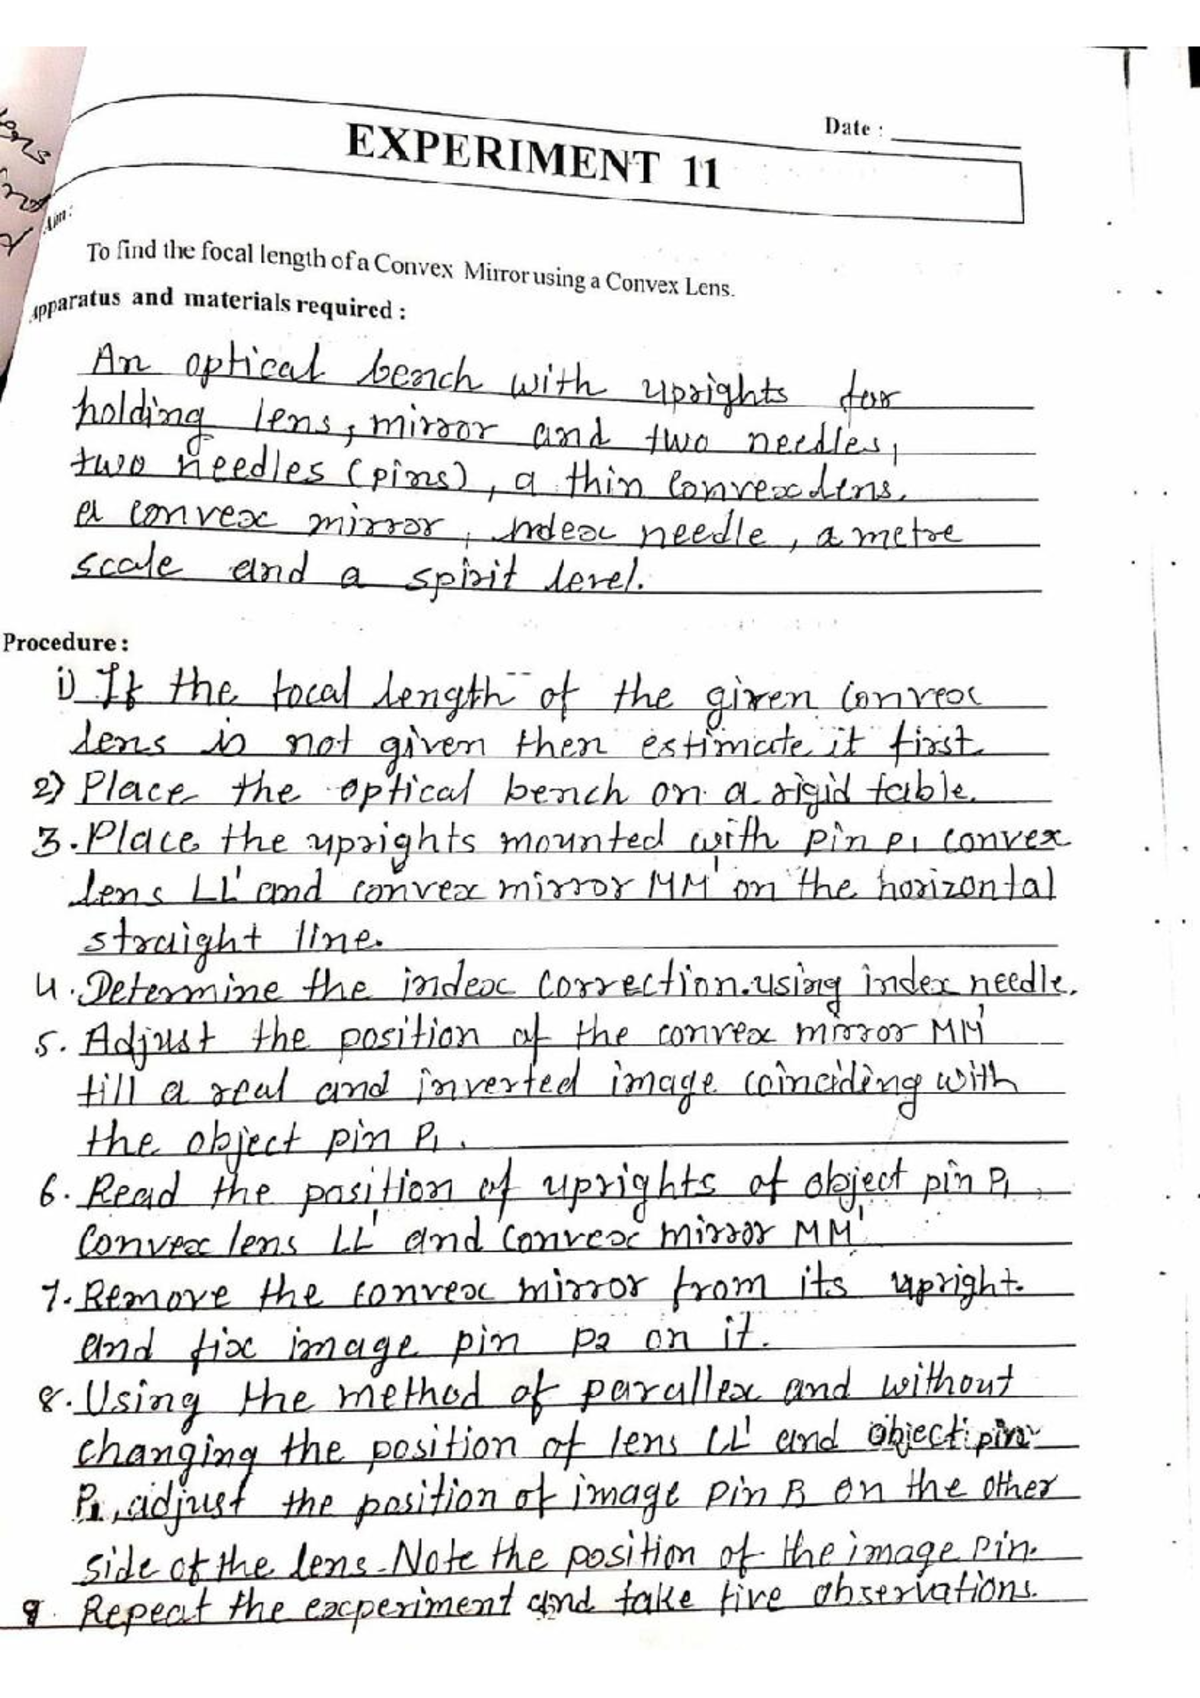 ens
Date :
EXPERIMENT 11
Aim :
To find the focal length of a Convex Mirror using a Convex Lens.
Apparatus and materials required :
An optical bench with uprights for
holding lens, mirror and two needles,
two needles (pins), a thin convex lens,
a convex mirror, index needle, a metre
scale and a spirit level.
Procedure :
1) If the focal length of the given convex
lens is not given then estimate it first.
2) Place the optical bench on a rigid table.
3. Place the uprights mounted with pin P1 convex
lens LL' and convex mirror MM' on the horizontal
straight line.
4. Determine the index correction. using index needle.
5. Adjust the position of the convex mirror MM'
till a real and inverted image coinciding with
the object pin P1.
6. Read the position of uprights of object pin P1,
Convex lens LL' and convex mirror MM'
7. Remove the convex mirror from its upright.
and fix image pin P2 on it.
8. Using the method of parallex and without
changing the position of lens LL' and object pin
P1, adjust the position of image pin on the other
side of the lens. Note the position of the image pin.
9. Repeat the experiment and take five observations.